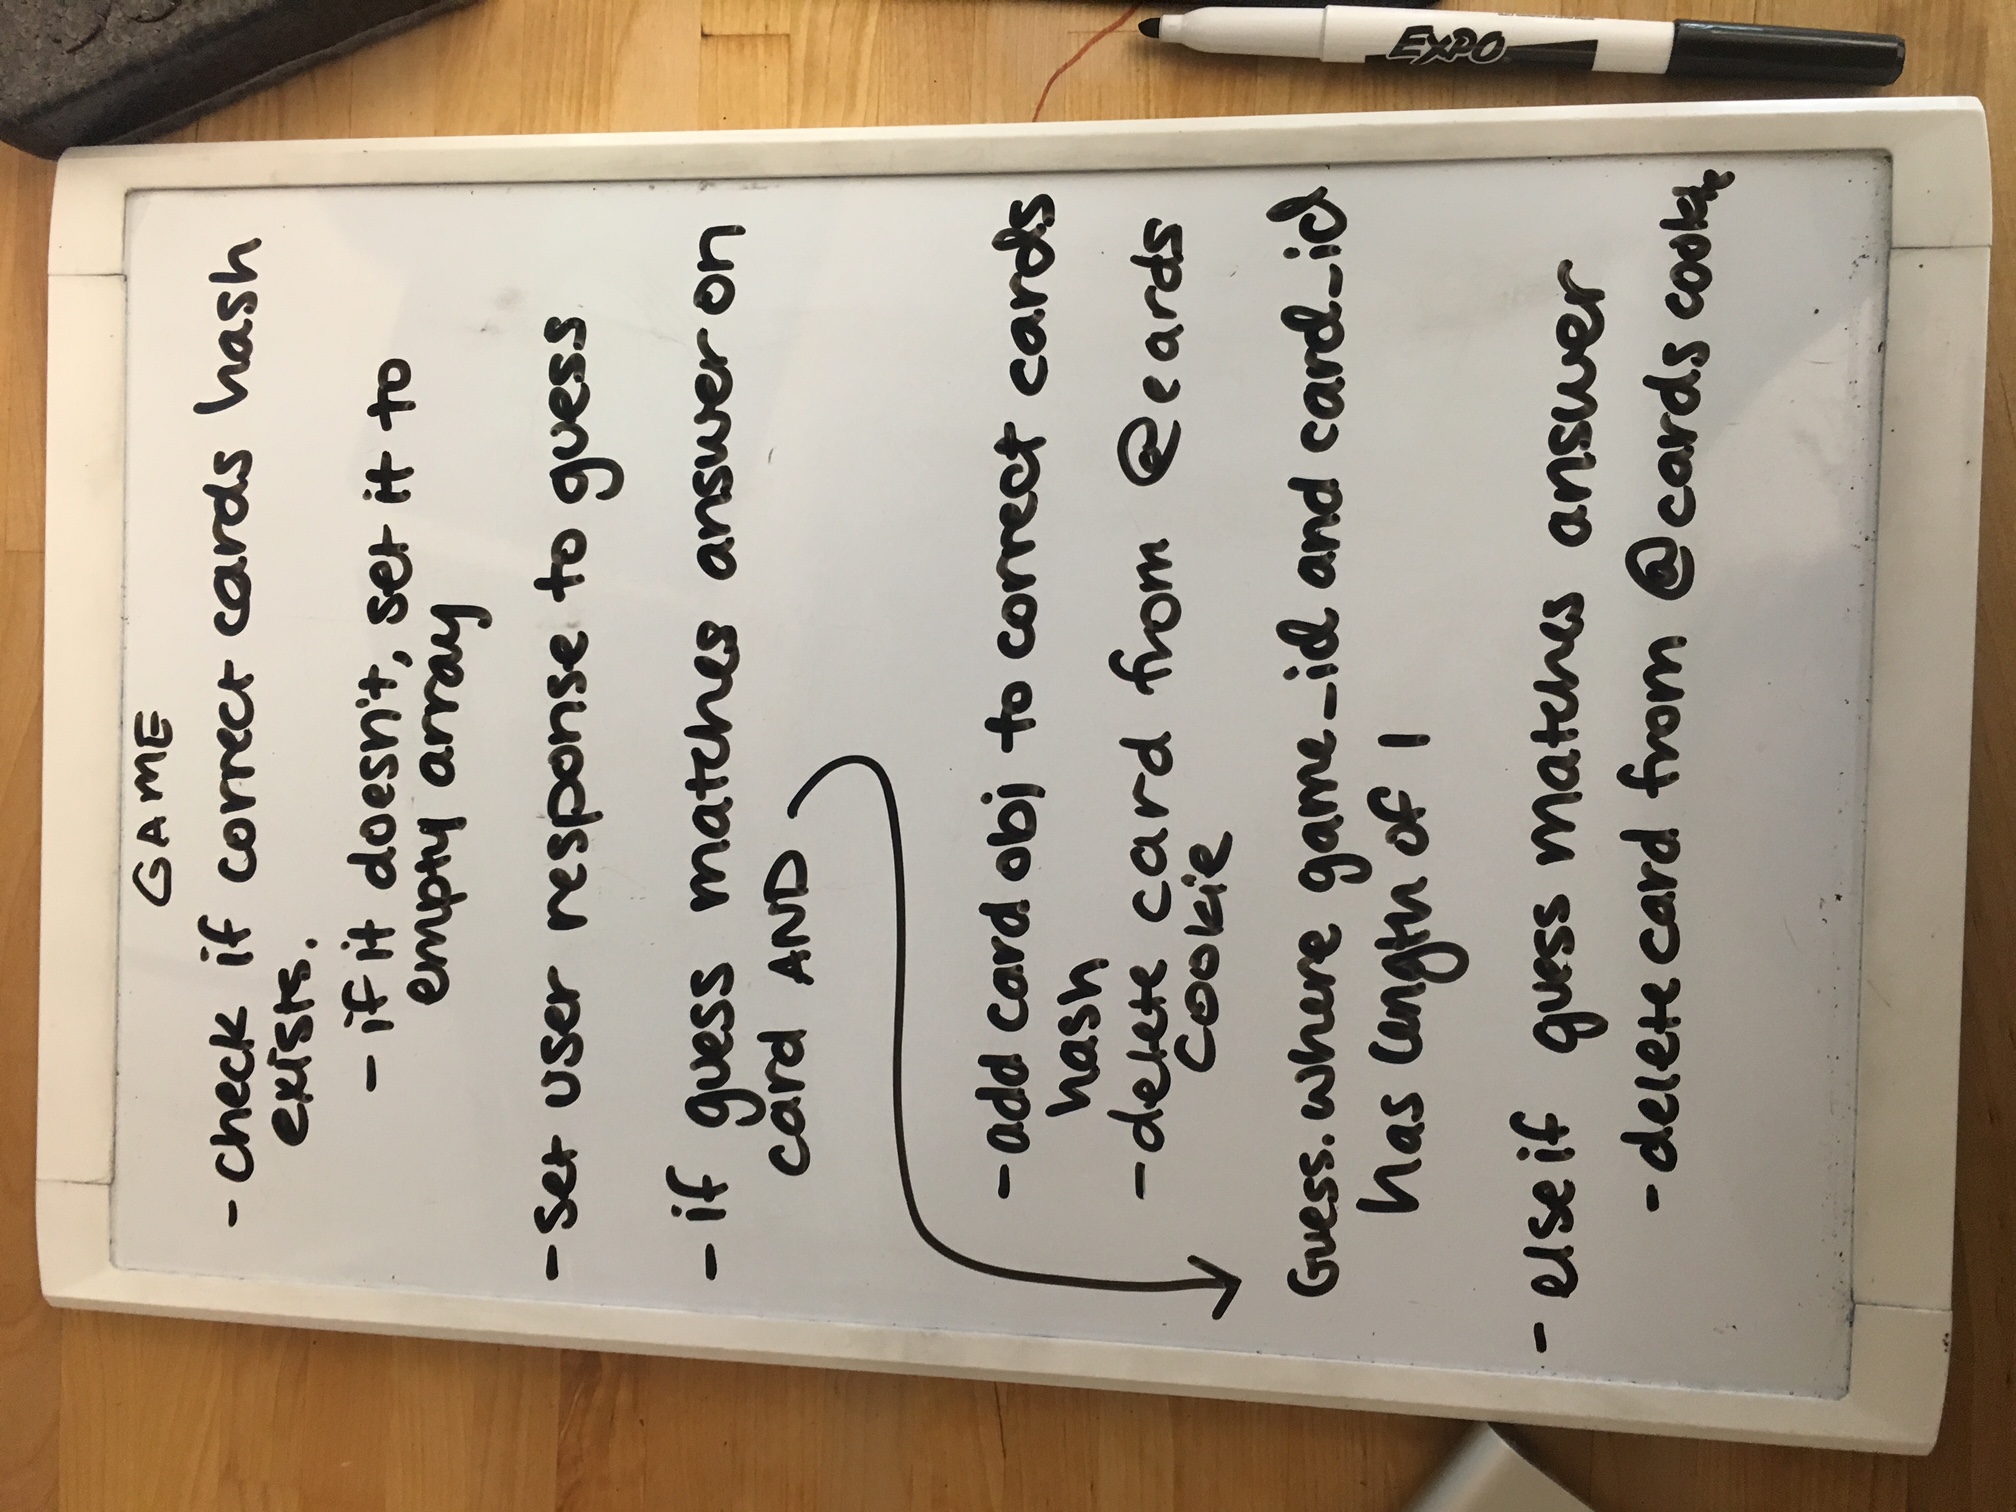 GAME
- check if correct cards hash
exists.
- if it doesn't, set it to
empty array
- set user response to guess
- if guess matches answer on
card AND
- add card obj to correct cards
hash
- delete card from @cards
cookie
Guess.where game_id and card_id
has length of 1
- else if guess matches answer
- delete card from @cards cookie
EXPO